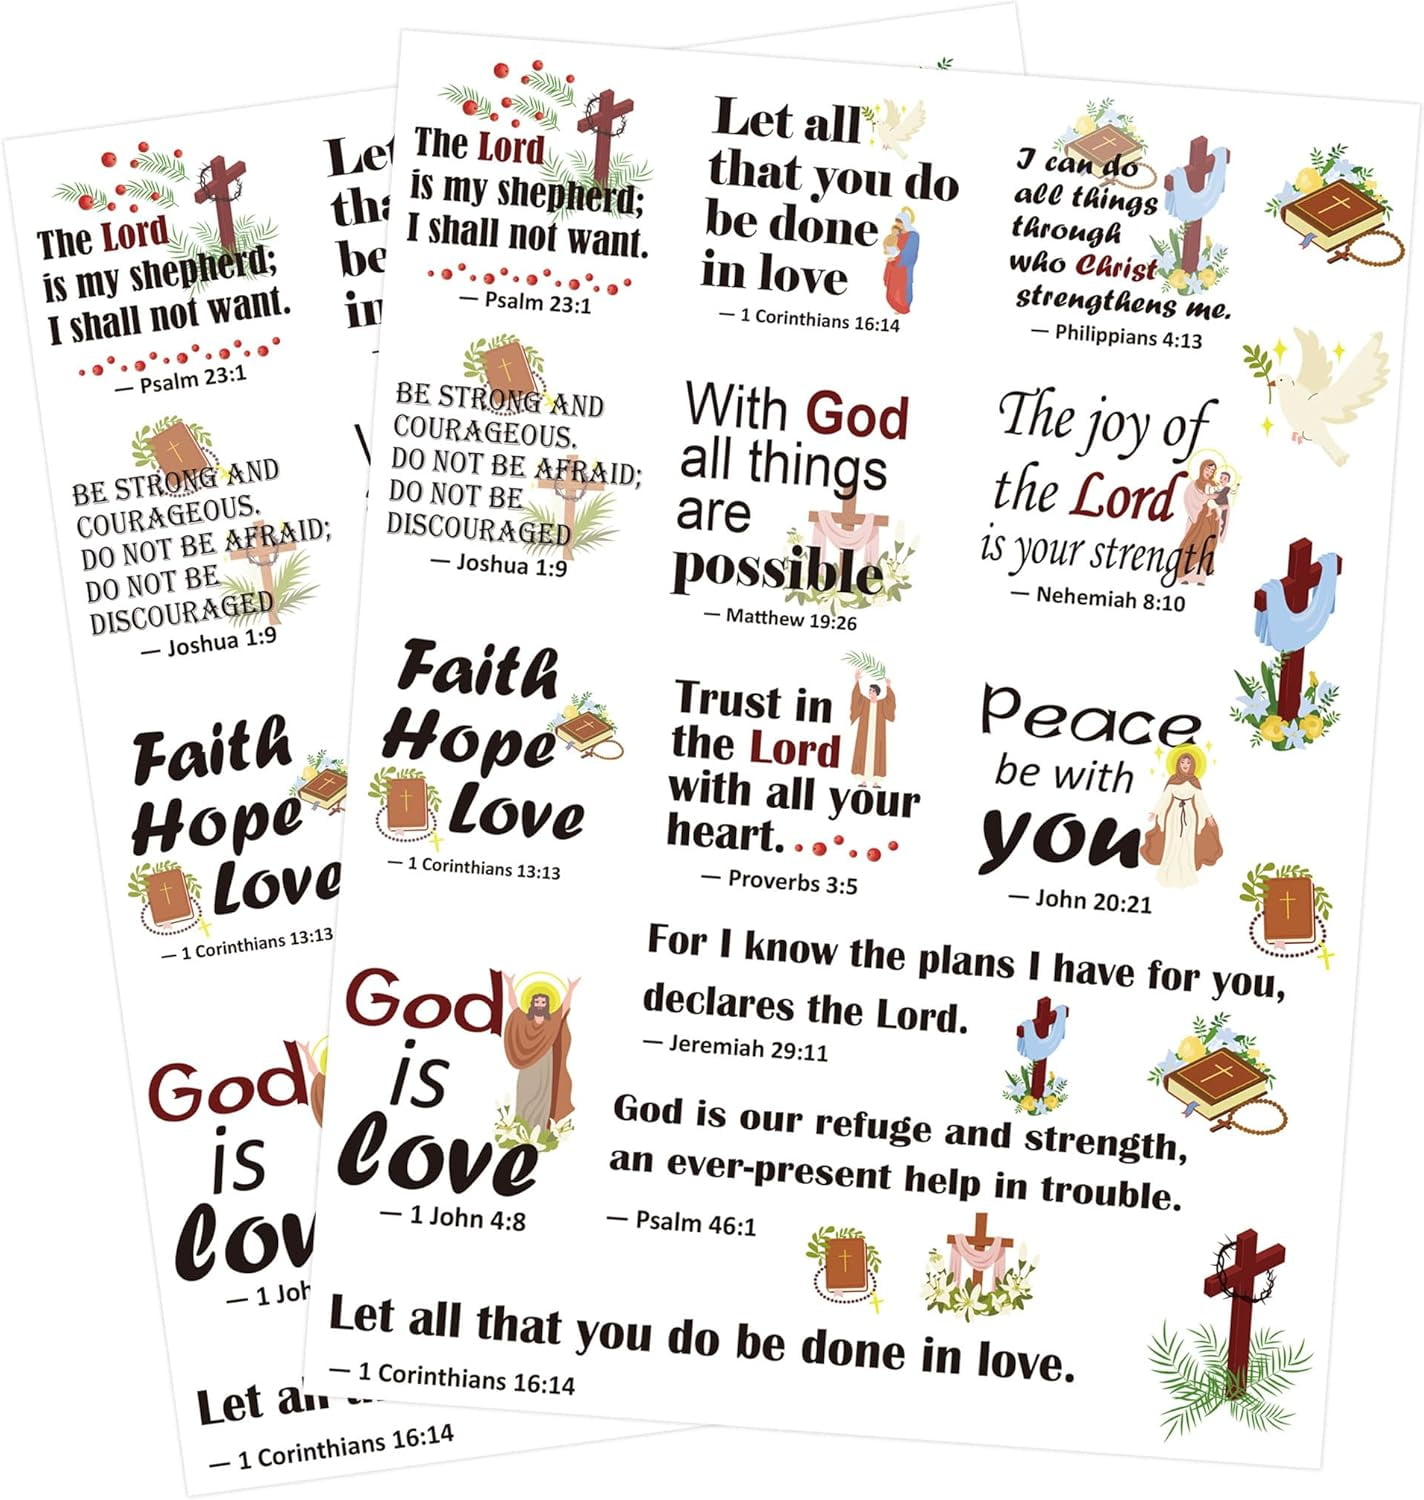 The Lord
is my shepherd;
I shall not want.
— Psalm 23:1
Let all
that you do
be done
in love
— 1 Corinthians 16:14
I can do
all things
through
who Christ
strengthens me.
— Philippians 4:13
BE STRONG AND
COURAGEOUS.
DO NOT BE AFRAID;
DO NOT BE
DISCOURAGED
— Joshua 1:9
With God
all things
are
possible
— Matthew 19:26
The joy of
the Lord
is your strength
— Nehemiah 8:10
Faith
Hope
Love
— 1 Corinthians 13:13
Trust in
the Lord
with all your
heart.
— Proverbs 3:5
Peace
be with
you
— John 20:21
God
is
love
— 1 John 4:8
For I know the plans I have for you,
declares the Lord.
— Jeremiah 29:11
God is our refuge and strength,
an ever-present help in trouble.
— Psalm 46:1
Let all that you do be done in love.
— 1 Corinthians 16:14
The Lord
is my shepherd;
I shall not want.
— Psalm 23:1
Let
be
in
BE STRONG AND
COURAGEOUS.
DO NOT BE AFRAID;
DO NOT BE
DISCOURAGED
— Joshua 1:9
Faith
Hope
Love
— 1 Corinthians 13:13
God
is
— 1
Let
— 1 Corinthians 16:14